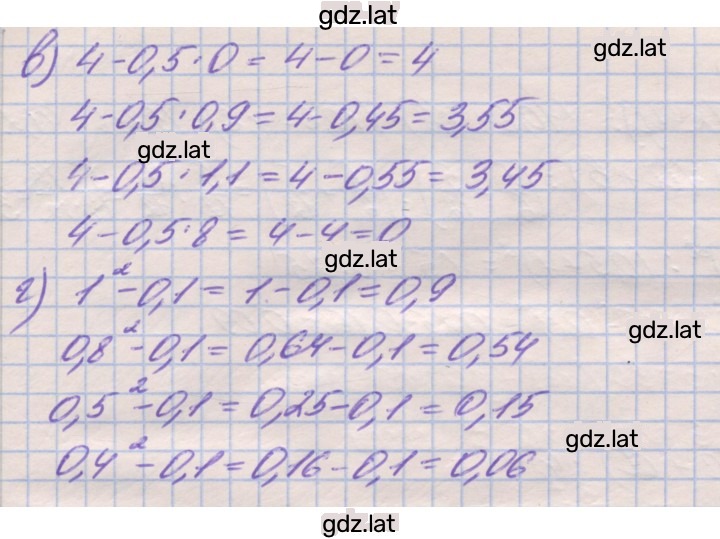 gdz.lat
gdz.lat
в) 4-0,5·0=4-0=4
4-0,5·0,9=4-0,45=3,55
gdz.lat
4-0,5·1,1=4-0,55=3,45
4-0,5·8=4-4=0
gdz.lat
г) 1²-0,1=1-0,1=0,9
gdz.lat
0,8²-0,1=0,64-0,1=0,54
0,5²-0,1=0,25-0,1=0,15
gdz.lat
0,4²-0,1=0,16-0,1=0,06
gdz.lat